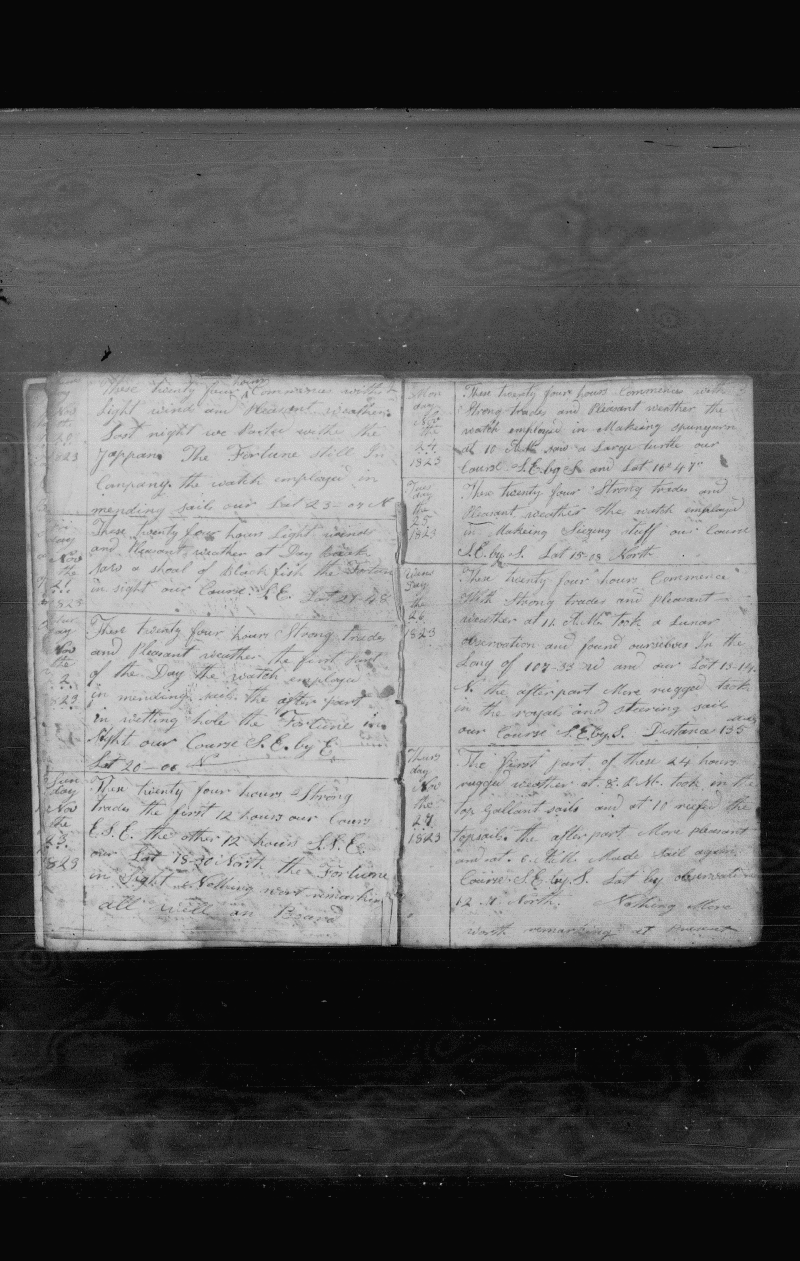 day
Nov
the
20
1823
These twenty four hours Commences withe
light wind and Pleasant weather
Last night we sailer withe the
Jappan. The Fortune still In
Company. the watch employed in
mending sails our Lat 23-07 N
Fri
day
Nov
the
21
1823
These Twenty four hours Light winds
and Pleasant weather at Day break
saw a shoal of Black fish the Fortune
in sight our Course S.E. Lat 21-48
day
Nov
the
2
23
These twenty four hours Strong trades
and Pleasant weather the first part
of the Day the watch employed
in mending sails the after part
in wetting hole the Fortune in
sight our Course S.E. by E.
Lat 20-00 N
Sun
day
Nov
the
23
1823
These twenty four hours Strong
trades the first 12 hours our Cours
E.S.E. the other 12 hours S.S.E.
our Lat 18-20 North the Fortune
in Sight Nothing wort remarking
all well on Board
Mon
day
Nov
the
24
1823
These twenty four hours Commences with
Strong trades and Pleasant weather the
watch employed in Makeing spunyarn
at 10 A.M. saw a Large turtle our
Course S.E. by S. and Lat 16-47
Tues
day
the
25
1823
These twenty four Strong trades and
Pleasant weather the watch employed
in Makeing Siezing stuff our Course
S.E. by S. Lat 15-28 North
Wens
day
the
26
1823
These twenty four hours Commence
With Strong trades and pleasant
weather at 11 A.M. took a Lunar
observation and found ourselves In the
Long of 107-33 W and our Lat 13-14
N. the after part More rugged took
in the royals and steering sail
our Course S.E. by S. Distance 135 miles
Thurs
day
Nov
the
27
1823
The first part of these 24 hours
rugged weather at 8. A.M. took in the
top Gallant sails and at 10 reefed the
topsails the after part More pleasant
and at 6 A.M. Made sail again
Course S.E. by S. Lat by observation
12 M. North. Nothing More
worth remarking at Present